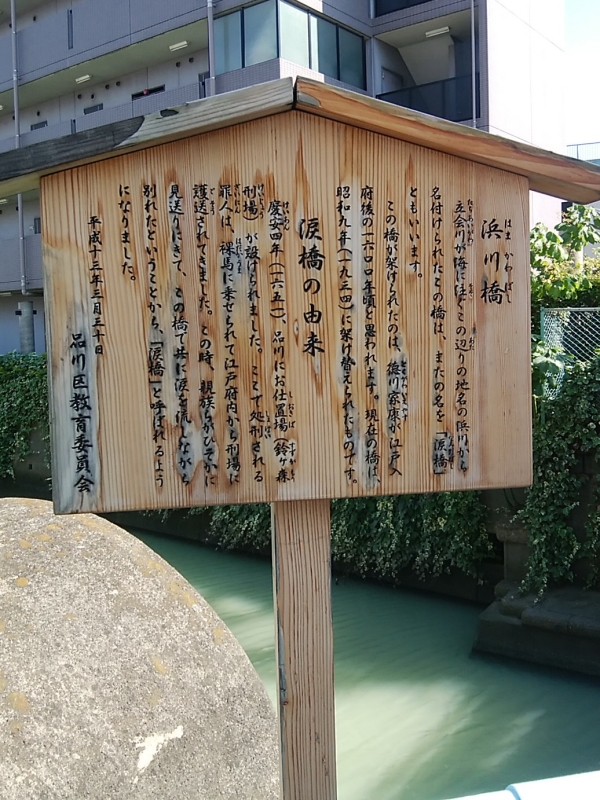 浜川橋
はま かわ ばし
立会川が海に注ぐこの辺りの地名の浜川から
たちあいがわ
名付けられたこの橋は、またの名を「涙橋」
ともいいます。
この橋が架けられたのは、徳川家康が江戸入
府後の一六〇〇年頃と思われます。現在の橋は、
昭和九年(一九三四)に架け替えられたものです。
涙橋の由来
慶安四年(一六五一)、品川にお仕置場(鈴ヶ森
けいあん
刑場)が設けられました。ここで処刑される
けいじょう
罪人は、裸馬に乗せられて江戸府内から刑場に
ざいにん
護送されてきました。この時、親族らがひそかに
見送りにきて、この橋で共に涙を流しながら
別れたということから、「涙橋」と呼ばれるよう
になりました。
平成十三年三月三十日
品川区教育委員会